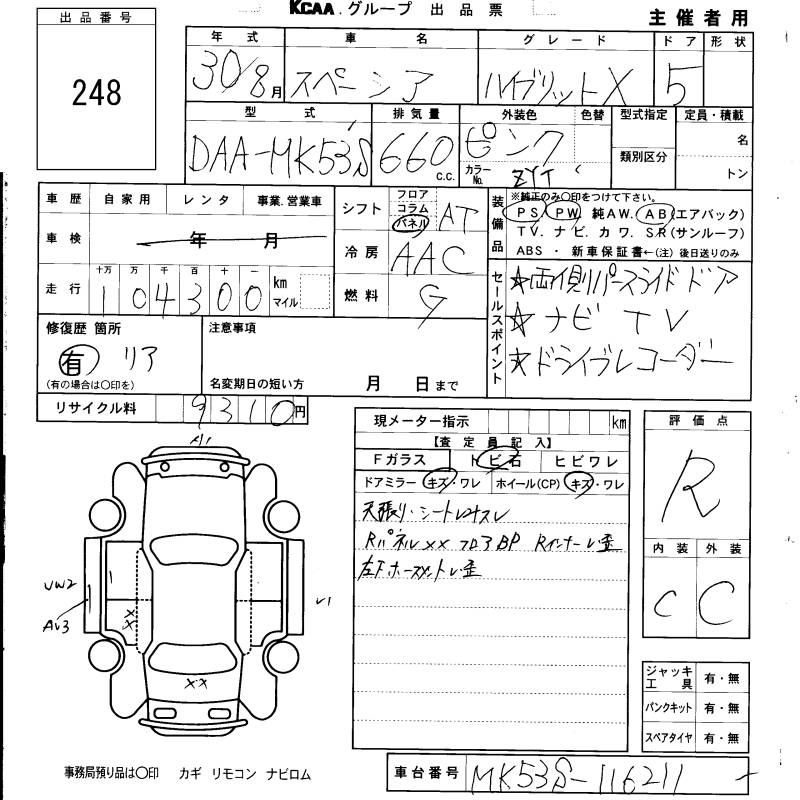 KCAA.グループ 出品票
主催者用
出品番号
248
年式 車名 グレード ドア 形状
30/8月 スペーシア ハイブリットX 5
型式 排気量 外装色 色替 型式指定 定員・積載
DAA-MK53S 660 c.c. ピンク 名
カラーNo. ZYT 類別区分 トン
車歴 自家用 レンタ 事業.営業車
車検 年 月
走行 十万 万 千 百 十 一
104300 km マイル
シフト フロア コラム パネル AT
冷房 AAC
燃料 G
装備品
※純正のみ○印をつけて下さい。
PS PW 純AW. AB(エアバック)
TV. ナビ. カワ. SR(サンルーフ)
ABS ・ 新車保証書←(注) 後日送りのみ
セールスポイント
☆両側パースライドドア
☆ナビ TV
☆ドライブレコーダー
修復歴 箇所
有 リア
(有の場合は○印を)
注意事項
名変期日の短い方 月 日まで
リサイクル料 9310円
現メーター指示 km
【査定員記入】
Fガラス トビ石 ヒビワレ
ドアミラー キズ・ワレ ホイール(CP) キズ・ワレ
天張り・シート
Rパネル×× フロアBP Rインナーレ歪
左F レ歪
評価点
R
内装 外装
C C
A1
UW2
AU3
××
××
U1
ジャッキ工具 有・無
パンクキット 有・無
スペアタイヤ 有・無
事務局預り品は○印 カギ リモコン ナビロム
車台番号 MK53S-116211